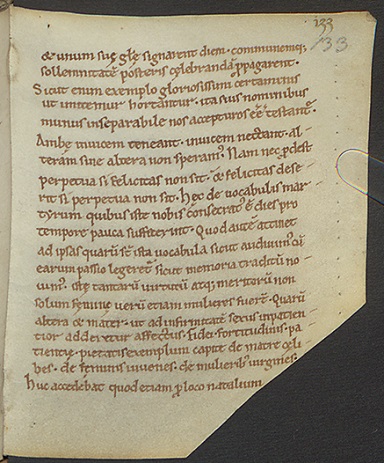 133
33
& unum suę glę signarent diem · communemq;
sollemnitatē posteris cęlebrandā ppagarent ·
Sicut enim exemplo gloriosissimi certaminis
ut imitemur hortantur · ita suis nominibus
munus inseparabile nos accepturos eē testantᷣ
Ambę invicem teneant · invicem nectant · al-
teram sine altera non speramᷣ. Nam nec pdest
perpetua si felicitas non sit · & felicitas dese-
rit si perpetua non sit · Hęc de vocabulis mar-
tyrum quibus iste nobis consecratᷣ ē dies pro
tempore pauca suffecerint · Quod autē attinet
ad ipsas quarū sē ista vocabula sicut audivimᷣ cū
earum passio legeretᷣ · sicut memorię traditū no-
vimᷣ · istę tantarū virtutū atq; meritorū non
solum feminę verū etiam mulieres fuerᷣ · Quarū
altera & mater · ut ad infirmitatē sexus inpatien-
tior adderetur affectus · Fidei · fortitudinis · pa-
tientię · pietatis exemplum capite de matre cęli-
bes · de feminis iuvenes · de mulieribᷣ virgines ·
Huc accedebat quod etiam p loco natalium